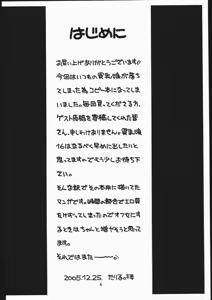 はじめに
お買い上げありがとうございます♪
今回はいつもの実乳娘が落ち
てしまった為、コピー本になってし
まいました。毎回買ってくださる方、
ゲスト原稿を寄稿してくれた皆
さん、申しわけありません。実乳娘
16は、なるべく早めに出したいと
思ってますのでもう少しお待ち下
さい。
そんな訳でその本用に描いてた
マンガです。時間の都合でエロ頁
をけずってしまったのでオフ本にす
るときはちゃんと描かそうと思って
ます。
それではまたーーーー♪
2005.12.25.
4